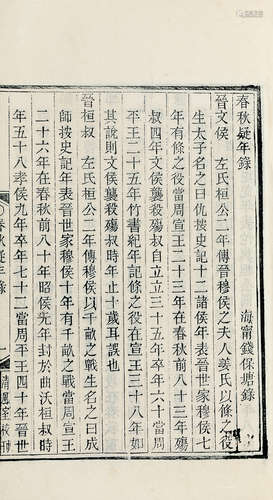 春秋疑年錄
海甯錢保塘錄
晉文侯　左氏桓公二年傳晉穆侯之夫人姜氏以條之役
生太子名之曰仇按史記十二諸侯年表晉世家穆侯七
年有條之役當周宣王二十三年在春秋前八十三年殤
叔四年文侯襲殺殤叔自立立三十五年卒年六十當周
平王二十五年竹書紀年記條之役在宣王三十八年如
其說則文侯襲殺殤叔時年止十歲耳誤也
晉桓叔　左氏桓公二年傳穆侯以千畝之戰生名之曰成
師按史記年表晉世家穆侯十年有千畝之戰當周宣王
二十六年在春秋前八十年昭侯元年封於曲沃桓叔時
年五十八孝侯九年卒年七十二當周平王四十年世
春秋疑年錄
一
清風室校刊